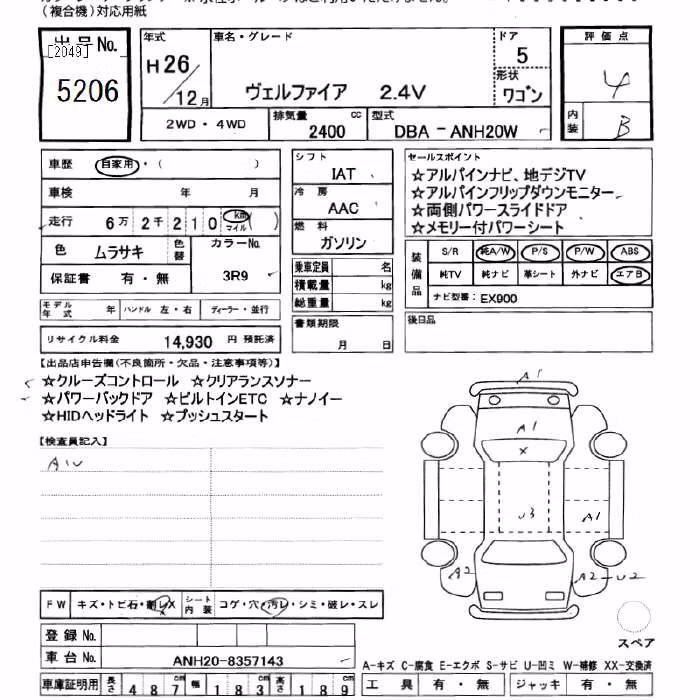 （複合機）対応用紙
出品No.
[2049]
5206
年式
H26/12月
車名・グレード
ヴェルファイア 2.4V
ドア
5
形状
ワゴン
評価点
4
内装
B
2WD・4WD
排気量 cc
2400
型式
DBA－ANH20W
車歴 自家用・（ ）
車検 年 月
走行 6万2千210 km マイル
色 ムラサキ 色替 カラーNo. 3R9
保証書 有・無
モデル年式 年 ハンドル 左・右 ディーラー・並行
リサイクル料金 14,930 円 預託済
シフト
IAT
冷房
AAC
燃料
ガソリン
乗車定員 名
積載量 kg
総重量 kg
書類期限
月 日
セールスポイント
☆アルパインナビ、地デジTV
☆アルパインフリップダウンモニター
☆両側パワースライドドア
☆メモリー付パワーシート
装備品
S/R 純A/W P/S P/W ABS
純TV 純ナビ 革シート 外ナビ エアB
ナビ型番： EX900
後日品
【出品店申告欄（不良箇所・欠品・注意事項等）】
☆クルーズコントロール ☆クリアランスソナー
☆パワーバックドア ☆ビルトインETC ☆ナノイー
☆HIDヘッドライト ☆プッシュスタート
【検査員記入】
A1U
A1
A1
X
U3
A1
A2
A2-U2
スペア
FW キズ・トビ石・刺レX シート内装 コゲ・穴・汚レ・シミ・破レ・スレ
登録No.
車台No. ANH20-8357143
車庫証明用 長さ 487cm 幅 183cm 高さ 189cm
A-キズ C-腐食 E-エクボ S-サビ U-凹ミ W-補修 XX-交換済
工具 有・無 ジャッキ 有・無